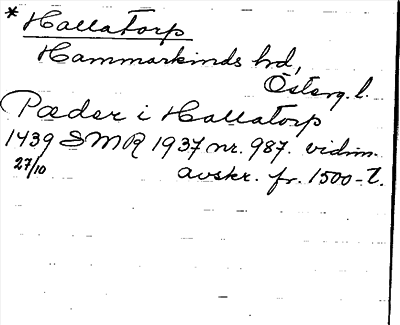 * Hallatorp
Hammarkinds hd,
Österg. l.
Pæder i Hallatorp
1439 SMR 1937 nr. 987. vidim.
27/10 avskr. fr. 1500-t.